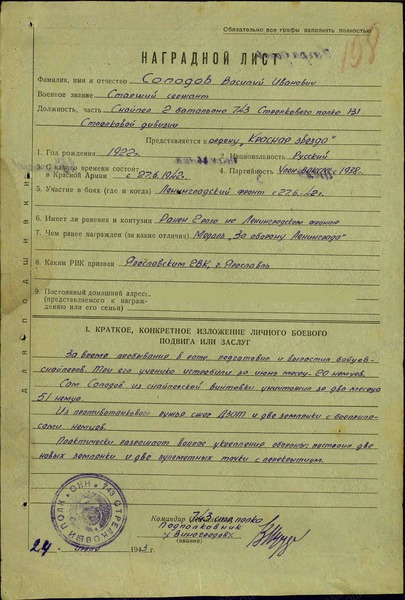 Обязательно все графы заполнять полностью
198
НАГРАДНОЙ ЛИСТ
Фамилия, имя и отчество Солодов Василий Иванович
Военное звание Старший сержант
Должность, часть Снайпер 2 батальона 743 Стрелкового полка 131
Стрелковой дивизии
Представляется к ордену "Красная звезда"
1. Год рождения 1922 2. Национальность Русский
3. С какого времени состоит в Красной Армии с 27.6.1942. 4. Партийность Член с 1938.
5. Участие в боях (где и когда) Ленинградский фронт с 27.6.42г.
6. Имеет ли ранения и контузии Ранен 2 раза на Ленинградском фронте
7. Чем ранее награжден (за какие отличия) Медаль "За оборону Ленинграда"
8. Каким РВК призван Ярославским РВК, г. Ярославль
9. Постоянный домашний адрес: (представляемого к награждению или его семьи)
ДЛЯ ПОДШИВКИ
I. КРАТКОЕ, КОНКРЕТНОЕ ИЗЛОЖЕНИЕ ЛИЧНОГО БОЕВОГО
ПОДВИГА ИЛИ ЗАСЛУГ
За время пребывания в роте подготовил и вырастил бойцов-
снайперов. Три его ученика истребили за июнь месяц - 20 немцев.
Сам Солодов из снайперской винтовки уничтожил за два месяца
51 немца.
Из противотанкового ружья сжег ДЗОТ и две землянки с боеприпа-
сами немцев.
Практически разрешает вопрос укрепления обороны: построил две
новых землянки и две пулеметных точки с перекрытием.
743 СТРЕЛКОВЫЙ ПОЛК
Командир 743 стр. полка
Подполковник
(звание) /Виноградов/
24. 1943 г.